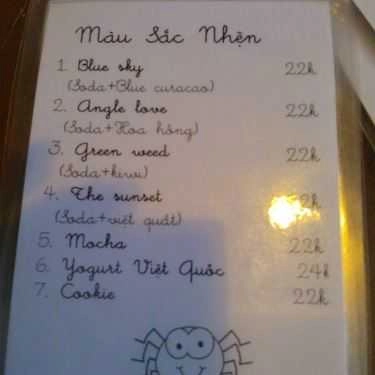 Màu Sắc Nhện
1. Blue sky 22k
(Soda+Blue curacao)
2. Angle love 22k
(Soda+Hoa hồng)
3. Green weed 22k
(Soda+kiwi)
4. The sunset 2k
(Soda+việt quất)
5. Mocha 22k
6. Yogurt Việt Quốc 24k
7. Cookie 22k